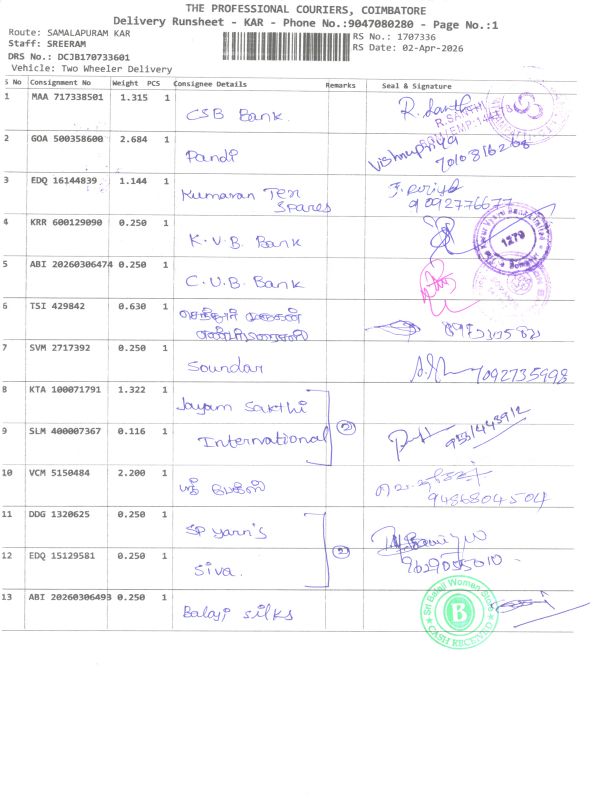 THE PROFESSIONAL COURIERS, COIMBATORE
Delivery Runsheet - KAR - Phone No.:9047080280 - Page No.:1
Route: SAMALAPURAM KAR
Staff: SREERAM
DRS No.: DCJB170733601
Vehicle: Two Wheeler Delivery
RS No.: 1707336
RS Date: 02-Apr-2026
S No Consignment No Weight PCS Consignee Details Remarks Seal & Signature
1 MAA 717338501 1.315 1 CSB Bank.
R.SAKTHI
2 GOA 500358600 2.684 1 Pandi Vishnupriya
7010816268
3 EDQ 16144839 1.144 1 Kumaran Tex
Spares 9092776677
4 KRR 600129090 0.250 1 K.V.B. Bank
1279
5 ABI 20260306474 0.250 1 C.U.B. Bank
6 TSI 429842 0.630 1
7 SVM 2717392 0.250 1 Soundar 7092735998
8 KTA 100071791 1.322 1 Jayam Sakthi
2
9 SLM 400007367 0.116 1 International
10 VCM 5150484 2.200 1
9486804504
11 DDG 1320625 0.250 1 SP yarn's
2
12 EDQ 15129581 0.250 1 Siva. 9629055010
13 ABI 20260306493 0.250 1 Balaji silks
Sri Balaji Women Store
B
CASH RECEIVED